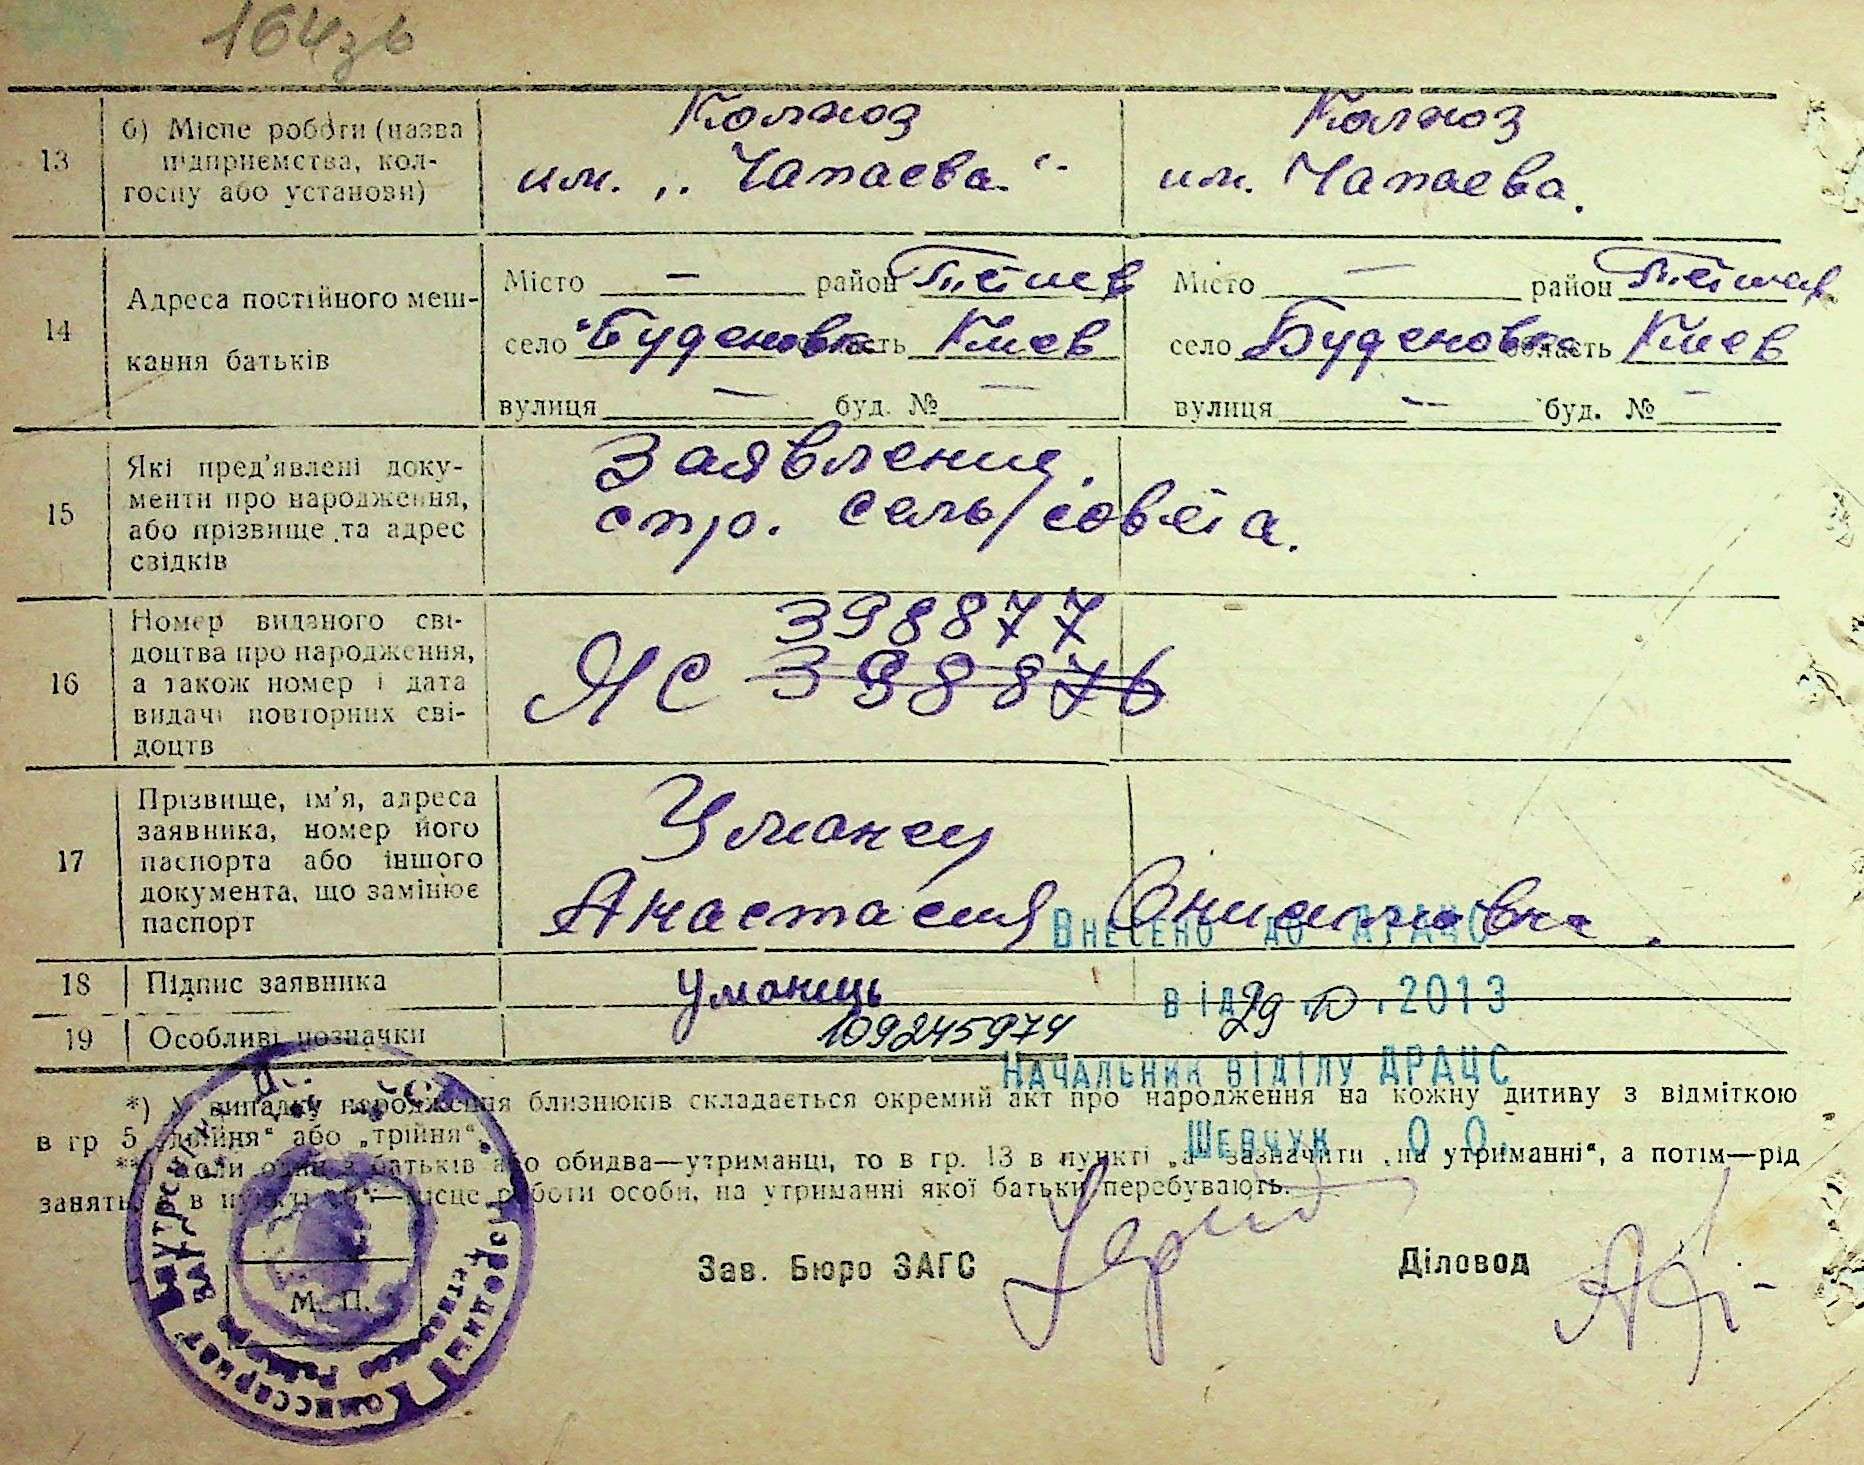 164зв
13
б) Місце роботи (назва
підприємства, кол-
госпу або установи)
Колхоз
им. „Чапаева"
Колхоз
им. Чапаева.
14
Адреса постійного меш-
кання батьків
Місто — район Тетиев
село Буденовка область Киев
вулиця — буд. № —
Місто — район Тетиев
село Буденовка область Киев
вулиця — буд. № —
15
Які пред'явлені доку-
менти про народження,
або прізвище та адрес
свідків
Заявление.
спр. сель/совета.
16
Номер виданого сві-
доцтва про народження,
а також номер і дата
видачі повторних сві-
доцтв
398877
ЯС 398876
17
Прізвище, ім'я, адреса
заявника, номер його
паспорта або іншого
документа, що замінює
паспорт
Уманец
Анастасия Онисимовна.
Внесено до ДРАЦС
18
Підпис заявника
Уманець
від 29 .2013
19
Особливі позначки
109245974
Начальник відділу ДРАЦС
Шевчук О.О.
*) У випадку народження близнюків складається окремий акт про народження на кожну дитину з відміткою
в гр 5 „двійня" або „трійня".
**) Коли один з батьків або обидва—утриманці, то в гр. 13 в пункті „а" зазначити „на утриманні", а потім—рід
занять, а в пункті „б"—місце роботи особи, на утриманні якої батьки перебувають.
Зав. Бюро ЗАГС
Діловод
М. П.